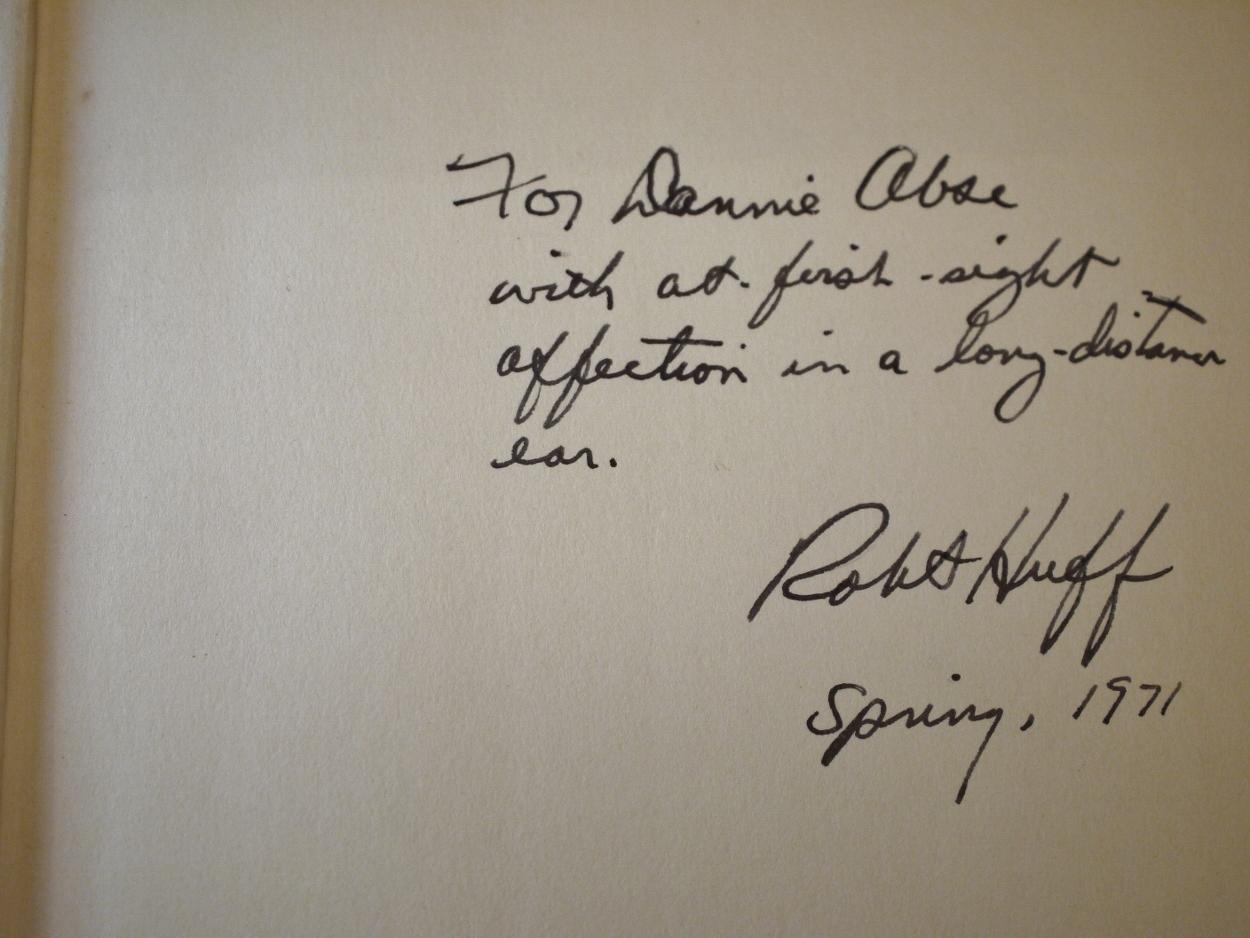 For Dannie Abse
with at-first-sight
affection in a long-distance
ear.
Robt Huff
Spring, 1971